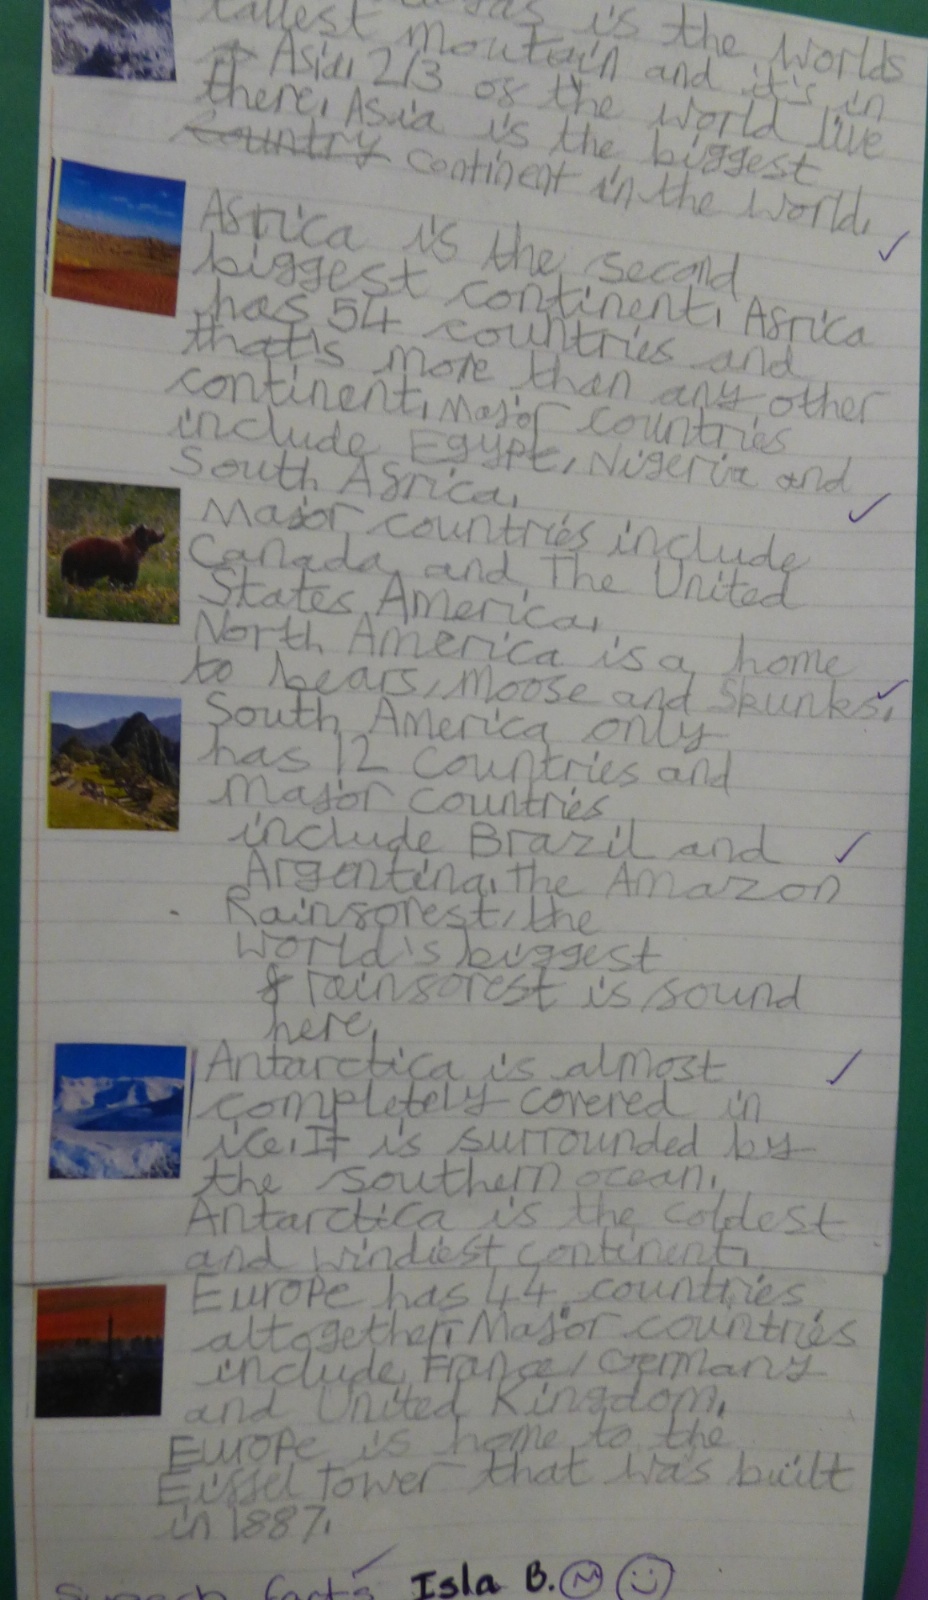 is the worlds
tallest moutain and it's in
Asia, 2/3 of the world live
there, Asia is the biggest
country continent in the world.
Africa is the second
biggest continent, Africa
has 54 countries and
that's more than any other
continent, Major countries
include Egypt, Nigeria and
South Africa.
Major countries include
Canada and The United
States America,
North America is a home
to bears, moose and Skunks.
South America only
has 12 countries and
major countries
include Brazil and
Argentina, the Amazon
Rainforest, the
world's biggest
rainforest is found
here,
Antarctica is almost
completely covered in
ice. It is surrounded by
the southern ocean.
Antarctica is the coldest
and windiest continent.
Europe has 44 countries
altogether, Major countries
include France, Germany
and United Kingdom.
Europe is home to the
Eiffel Tower that was built
in 1887.
facts Isla B. M